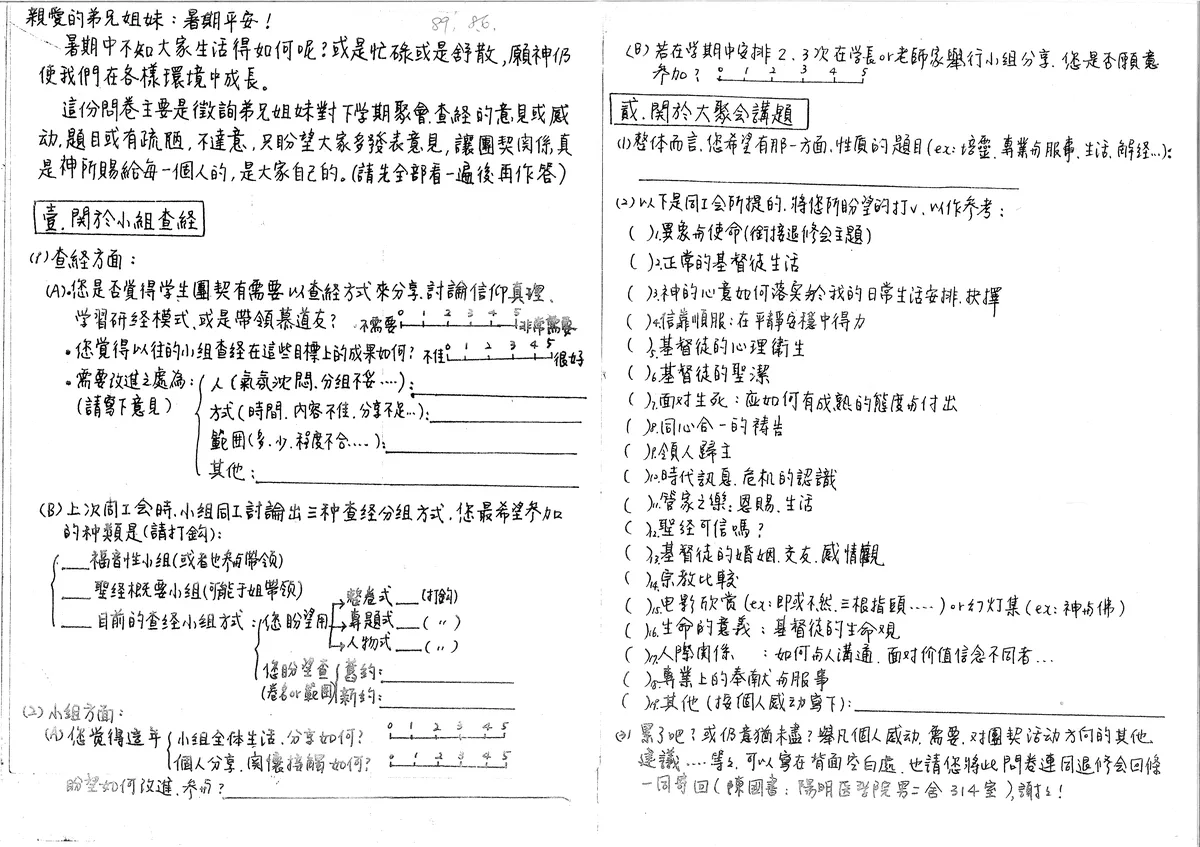 親愛的弟兄姐妹：暑期平安！
89. 8.6.
暑期中不知大家生活得如何呢？或是忙碌或是舒散，願神仍
使我們在各樣環境中成長。
這份問卷主要是徵詢弟兄姐妹對下學期聚會.查經的意見或感
动，題目或有疏陋，不達意，只盼望大家多發表意見，讓團契関係真
是神所賜給每一個人的，是大家自己的。(請先全部看一遍後再作答)
壹.関於小組查経
(1)查経方面：
(A)•您是否覺得学生團契有需要以查経方式來分享.討論信仰真理、
學習研経模式、或是帶領慕道友？ 不需要 0 1 2 3 4 5 非常需要
•您覺得以往的小組查経在這些目標上的成果如何？ 不佳 0 1 2 3 4 5 很好
•需要改進之處為：人(氣氛沈悶、分組不妥‥‥)：
(請寫下意見) 方式(時間、內容不佳、分享不足…)：
範囲(多.少.程度不合‥‥)：
其他：
(B)上次同工会時、小組同工討論出三种查経分組方式，您最希望参加
的种類是(請打鈎)：
福音性小組(或者也参与帶領)
聖経概要小組(可能于姐帶領)
目前的查経小組方式：您盼望用 整卷式 (打鈎)
專題式 (〃)
人物式 (〃)
您盼望查 舊約：
(卷名or範囲) 新約：
(2)小組方面：
(A)您覺得這年 小組全体生活、分享如何？ 0 1 2 3 4 5
個人分享、関懷接觸如何？ 0 1 2 3 4 5
盼望如何改進、参与？
(B)若在学期中安排2、3次在学長or老師家舉行小組分享，您是否願意
参加？ 0 1 2 3 4 5
貳.関於大聚会講題
(1)整体而言，您希望有那一方面、性質的題目(ex：培靈、專業与服事、生活、解経…)：
(2)以下是同工会所提的，將您所盼望的打v，以作参考：
( )1.異象与使命(銜接退修会主題)
( )2.正常的基督徒生活
( )3.神的心意如何落实於我的日常生活安排、抉擇
( )4.信靠順服：在平靜安穩中得力
( )5.基督徒的心理衛生
( )6.基督徒的聖潔
( )7.面对生死：应如何有成熟的態度与付出
( )8.同心合一的禱告
( )9.領人歸主
( )10.時代訊息、危机的認識
( )11.管家之樂：恩賜、生活
( )12.聖経可信嗎？
( )13.基督徒的婚姻、交友、感情觀
( )14.宗教比較
( )15.电影欣賞(ex：即或不然、三根指頭‥‥)or幻灯集(ex：神与佛)
( )16.生命的意義：基督徒的生命观
( )17.人際関係 ：如何与人溝通、面对价值信念不同者…
( )18.專業上的奉献与服事
( )19.其他(按個人感动寫下)：
(3) 累了吧？或仍意猶未盡？舉凡個人感动、需要、对團契活动方向的其他
建議‥‥等等，可以寫在背面空白處，也請您將此問卷連同退修会回條
一同寄回(陳國書：陽明医學院男二舍314室)，謝謝！